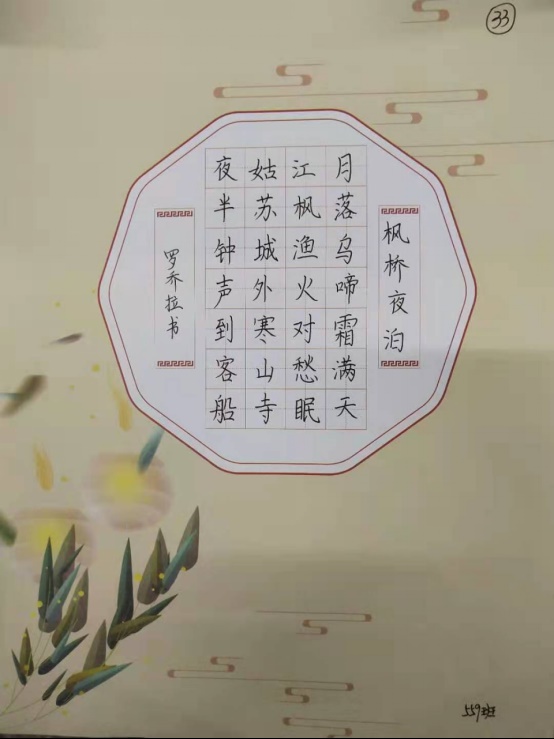 33
枫桥夜泊
月落乌啼霜满天
江枫渔火对愁眠
姑苏城外寒山寺
夜半钟声到客船
罗乔拉书
559班